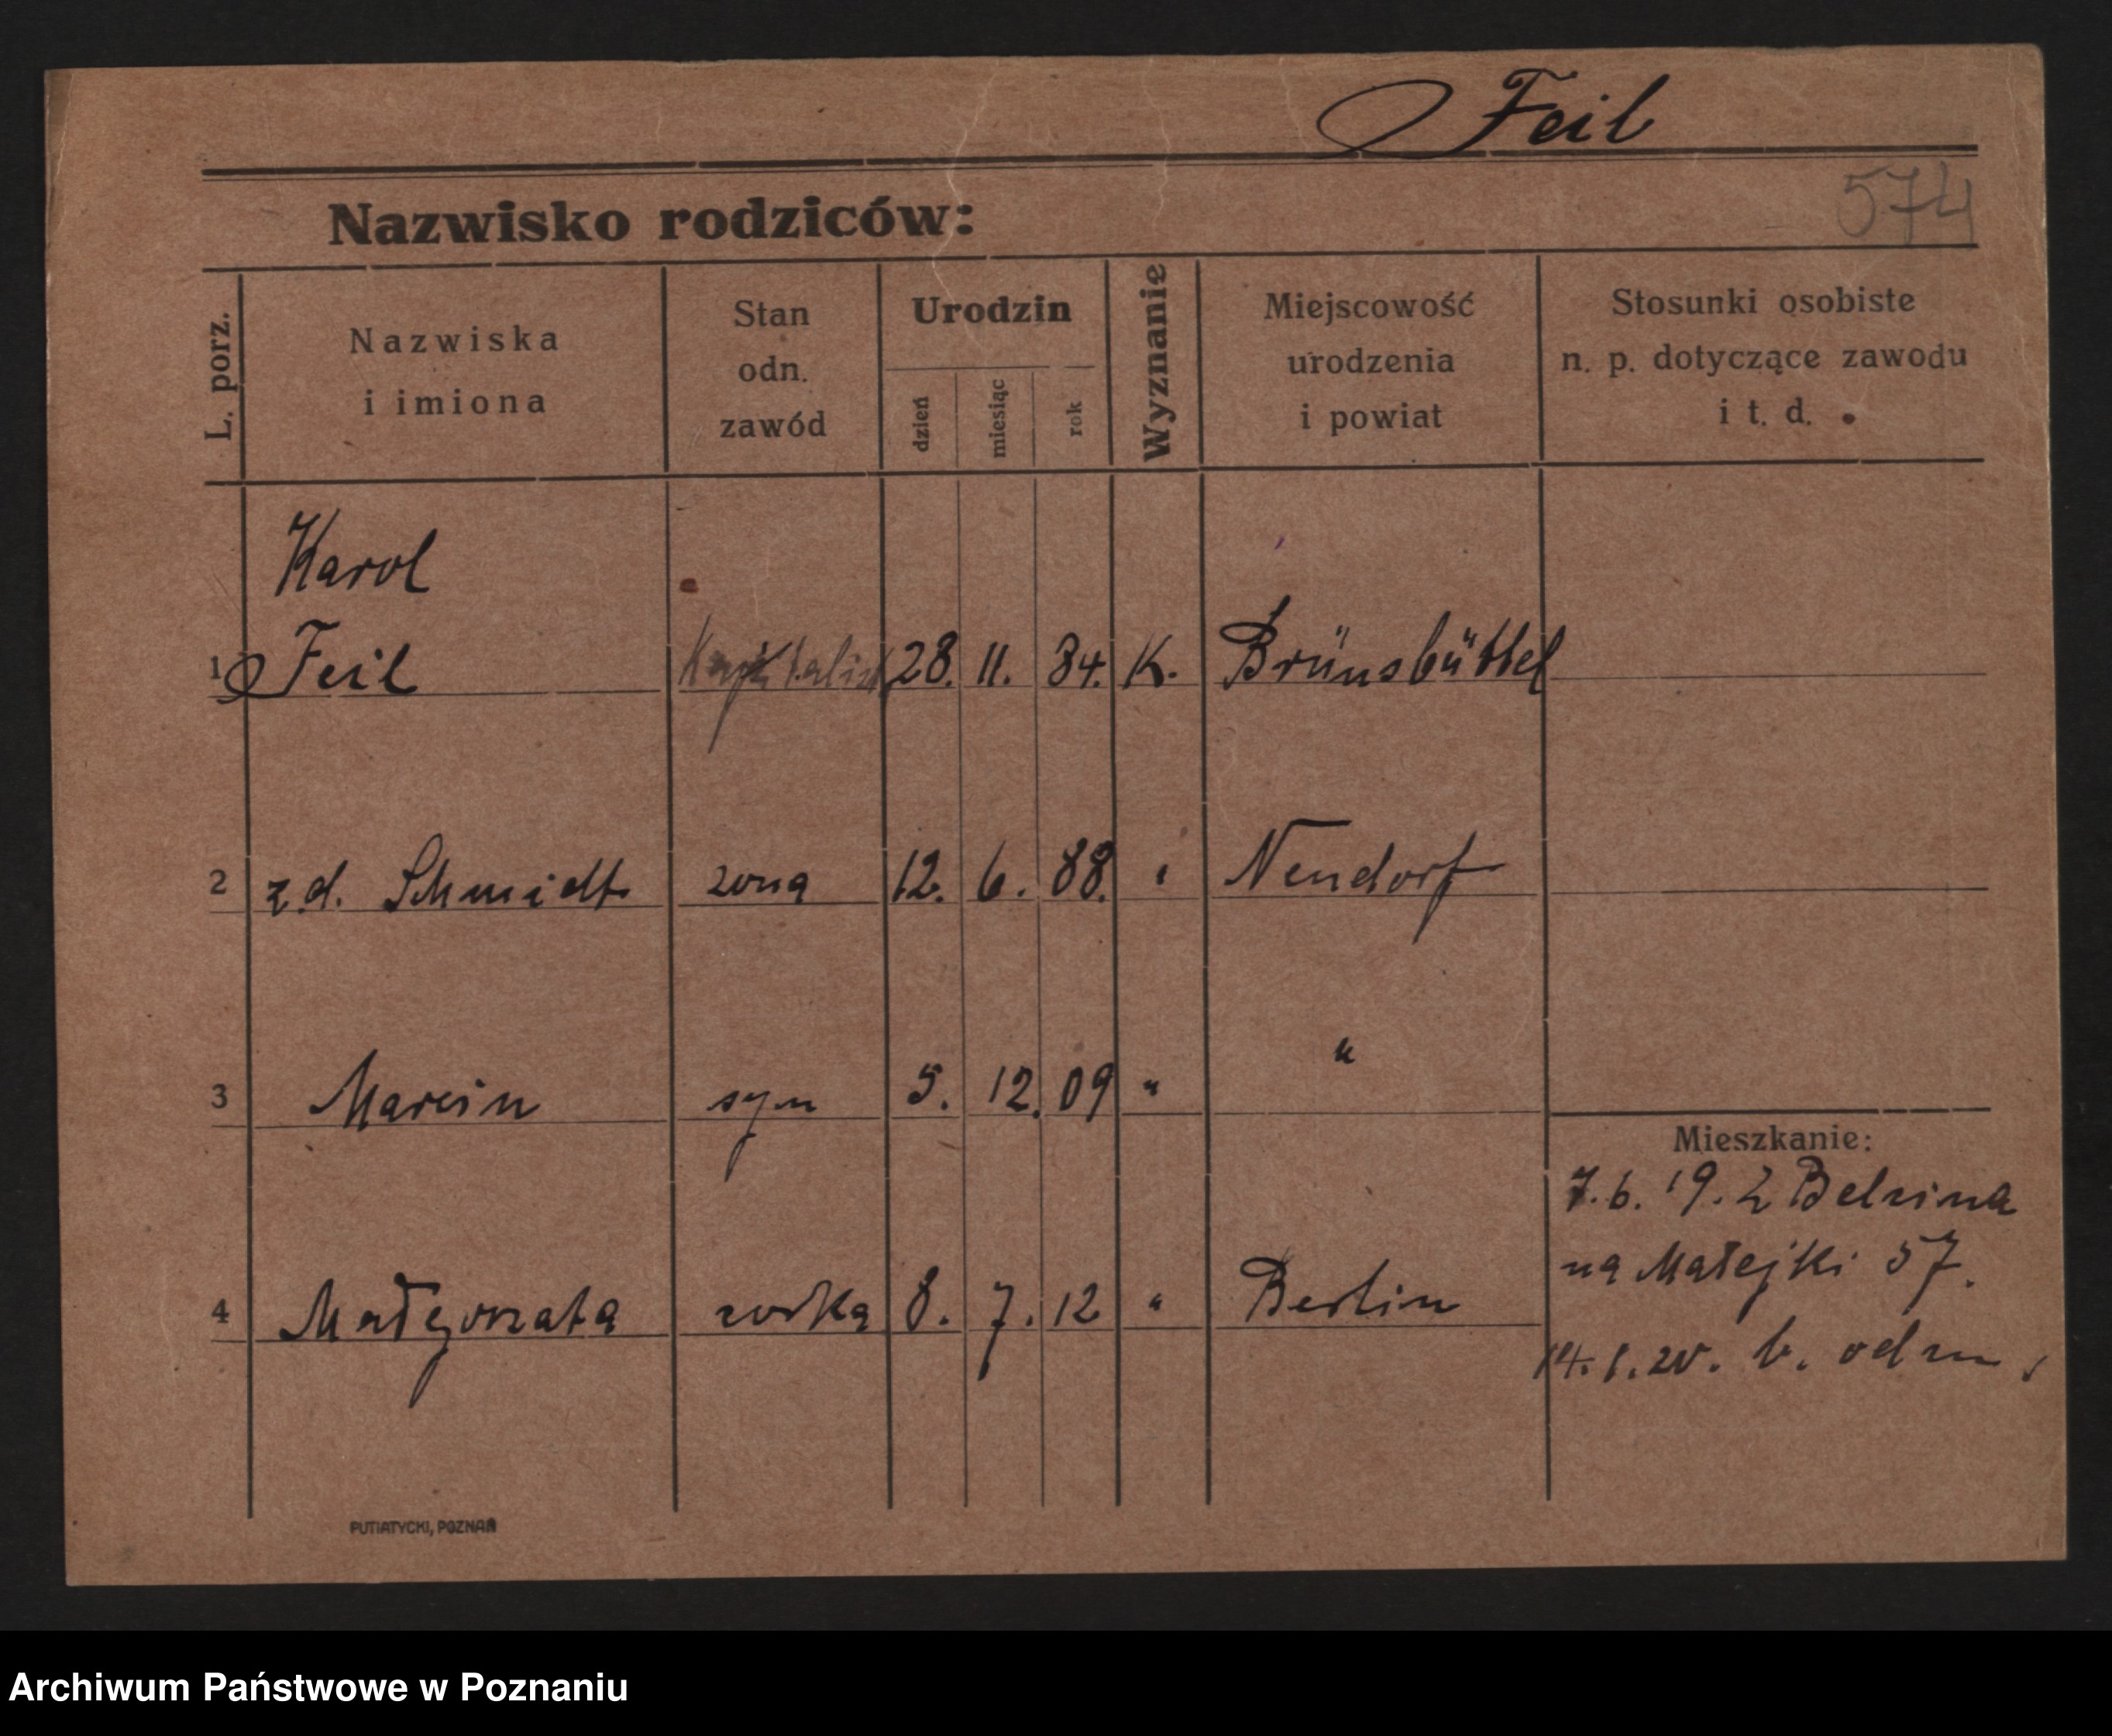 Feil
574
Nazwisko rodziców:
L. porz.
Nazwiska
i imiona
Stan
odn.
zawód
Urodzin
dzień
miesiąc
rok
Wyznanie
Miejscowość
urodzenia
i powiat
Stosunki osobiste
n. p. dotyczące zawodu
i t. d.
Karol
1 Feil 28. 11. 84. K. Brünsbüttel
2 z.d. Schmidt zona 12. 6. 88. " Neudorf
3 Marcin syn 5. 12. 09 " "
4 Małgorzata corka 8. 7. 12 " Berlin
Mieszkanie:
7.6.19. z
na Matejki 57.
14.1.20. b. odm.
PUTIATYCKI, POZNAŃ
Archiwum Państwowe w Poznaniu